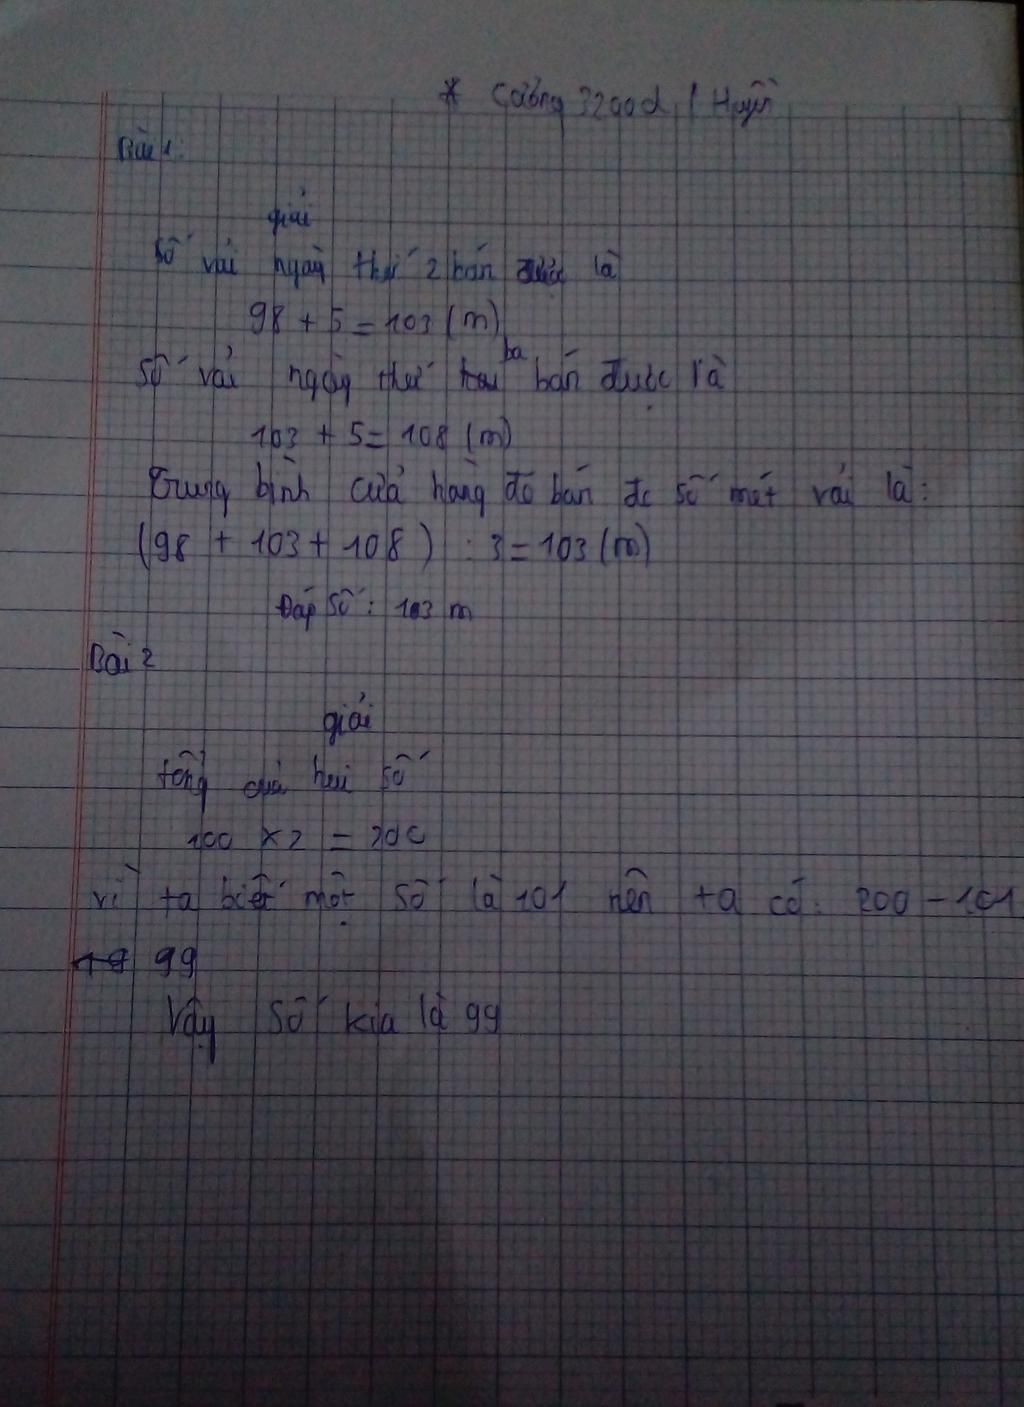 * Cường 3200đ / Huyền
Bài 1:
giải
Số vải ngày thứ 2 bán được là
98 + 5 = 103 (m)
Số vải ngày thứ ba bán được là
103 + 5 = 108 (m)
Trung bình cửa hàng đó bán đc số mét vải là:
(98 + 103 + 108) : 3 = 103 (m)
Đáp số: 103 m
Bài 2
giải
tổng của hai số
100 x 2 = 200
vì ta biết một số là 101 nên ta có: 200 - 101
99
Vậy số kia là 99